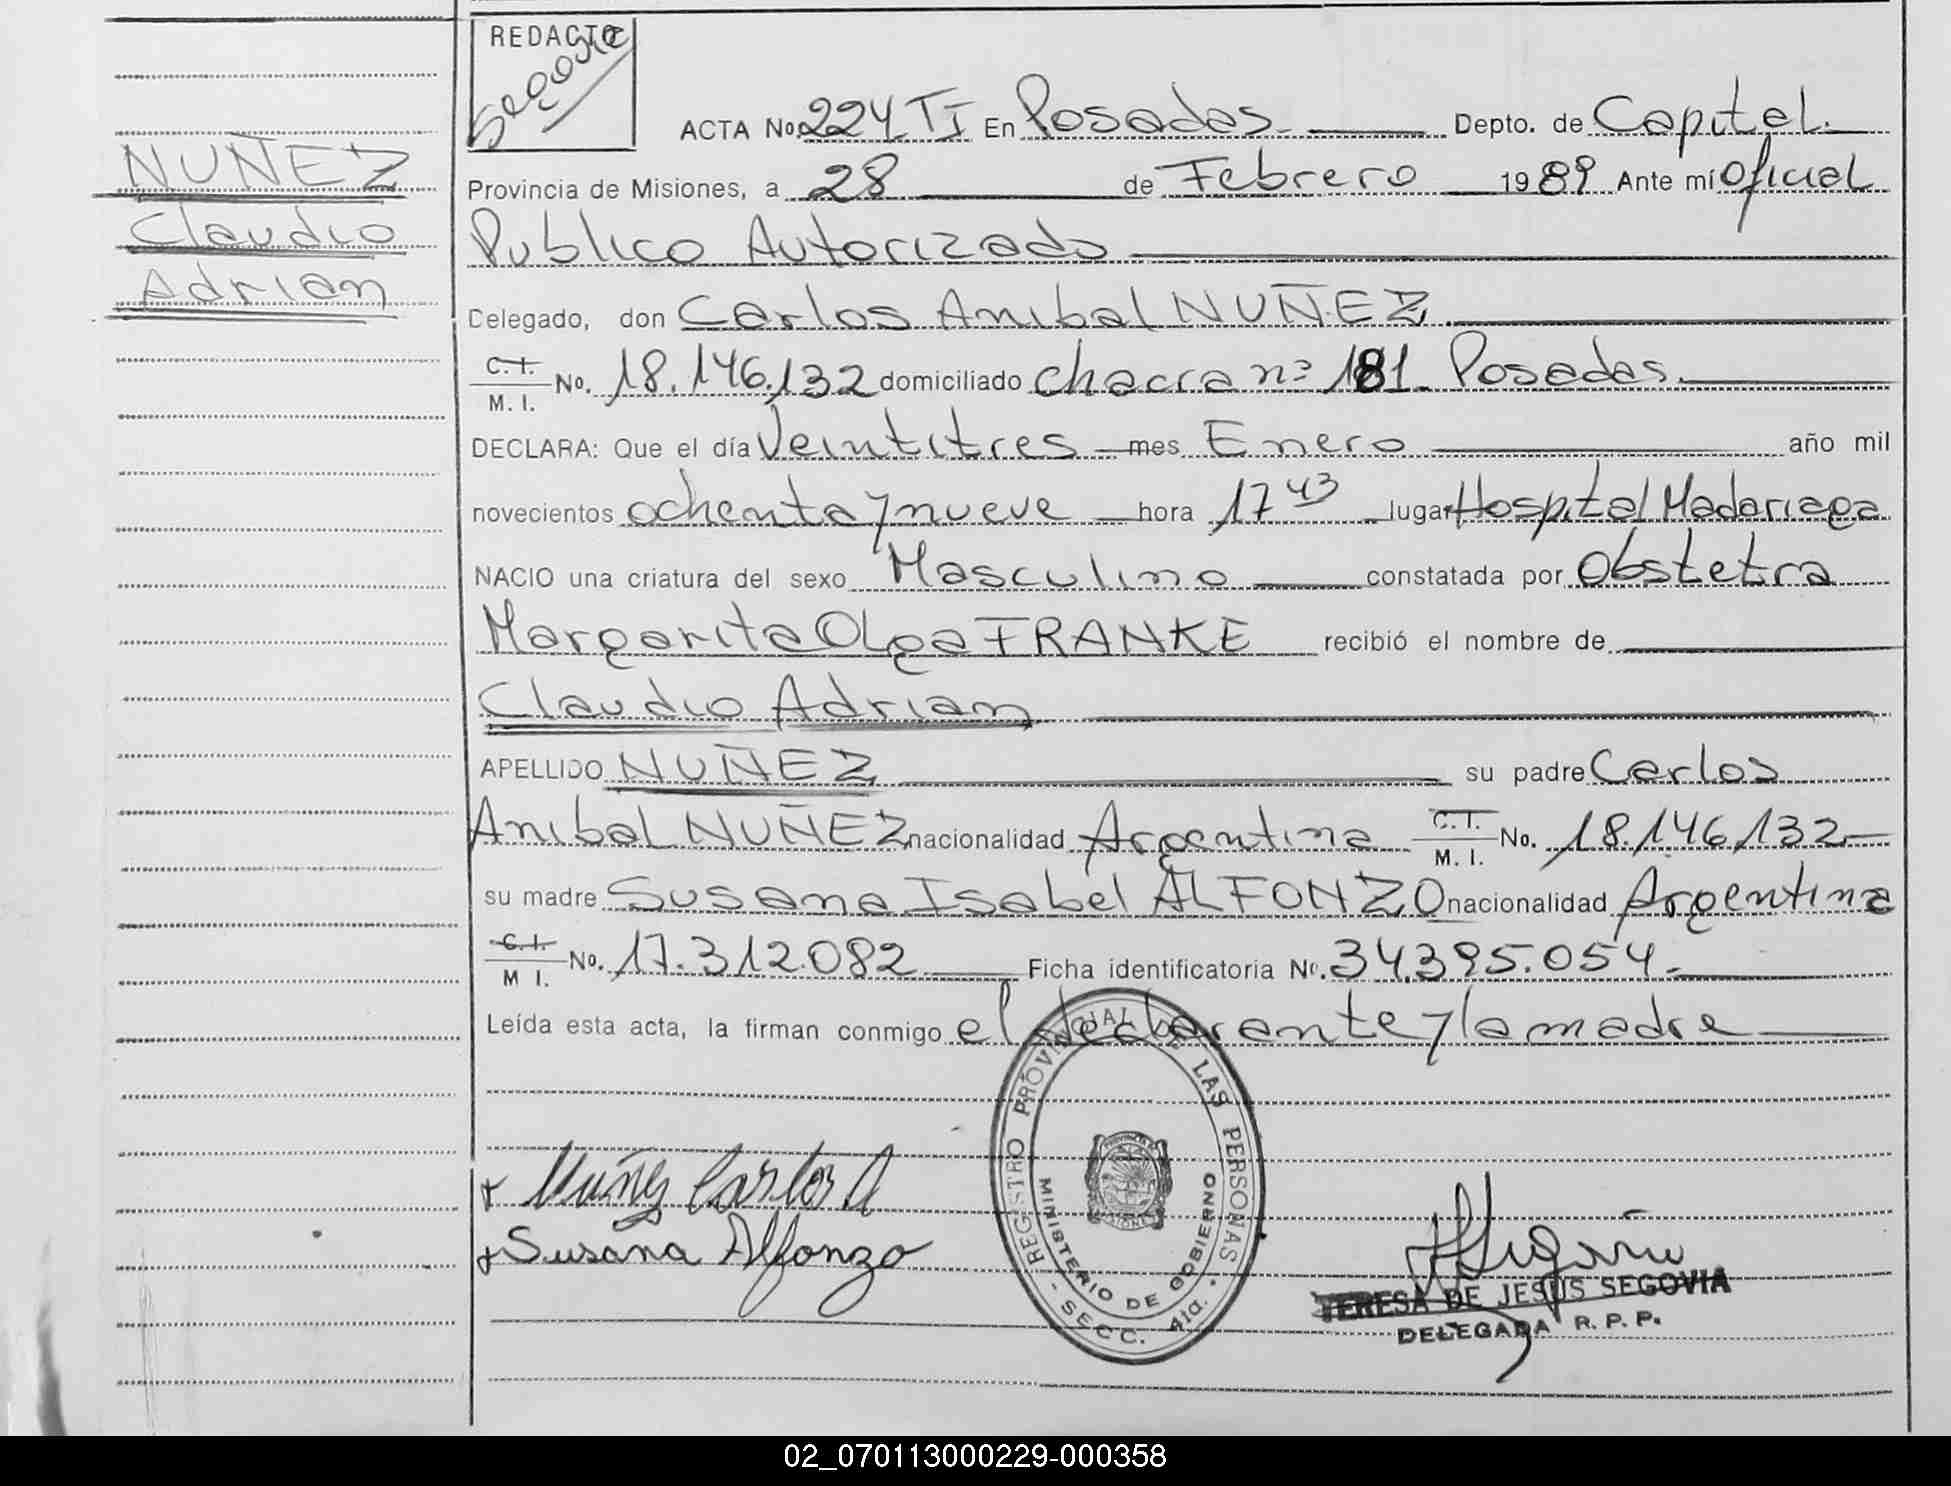 REDACTO
Segovia
NUÑEZ
Claudio
Adrian
ACTA No. 224 TI En Posadas Depto. de Capital.
Provincia de Misiones, a 28 de Febrero 1989 Ante mí Oficial
Publico Autorizado
Delegado, don Carlos Anibal NUÑEZ
C.I. M. I. No. 18.146.132 domiciliado chacra nº 181. Posadas.
DECLARA: Que el día Veintitres mes Enero año mil
novecientos ochenta y nueve hora 17 43 lugar Hospital Madariaga
NACIO una criatura del sexo Masculino constatada por Obstetra
Margarita Olga FRANKE recibió el nombre de
Claudio Adrian
APELLIDO NUÑEZ su padre Carlos
Anibal NUÑEZ nacionalidad Argentina C.I. M. I. No. 18.146.132
su madre Susana Isabel ALFONZO nacionalidad Argentina
C.I. M I. No. 17.312.082 Ficha identificatoria No. 34.395.054.
Leída esta acta, la firman conmigo el declarante y la madre
REGISTRO PROVINCIAL DE LAS PERSONAS
MINISTERIO DE GOBIERNO
- SECC. 4ta. -
Nuñez Carlos A
Susana Alfonzo
TERESA DE JESUS SEGOVIA
DELEGADA R. P. P.
02_070113000229-000358